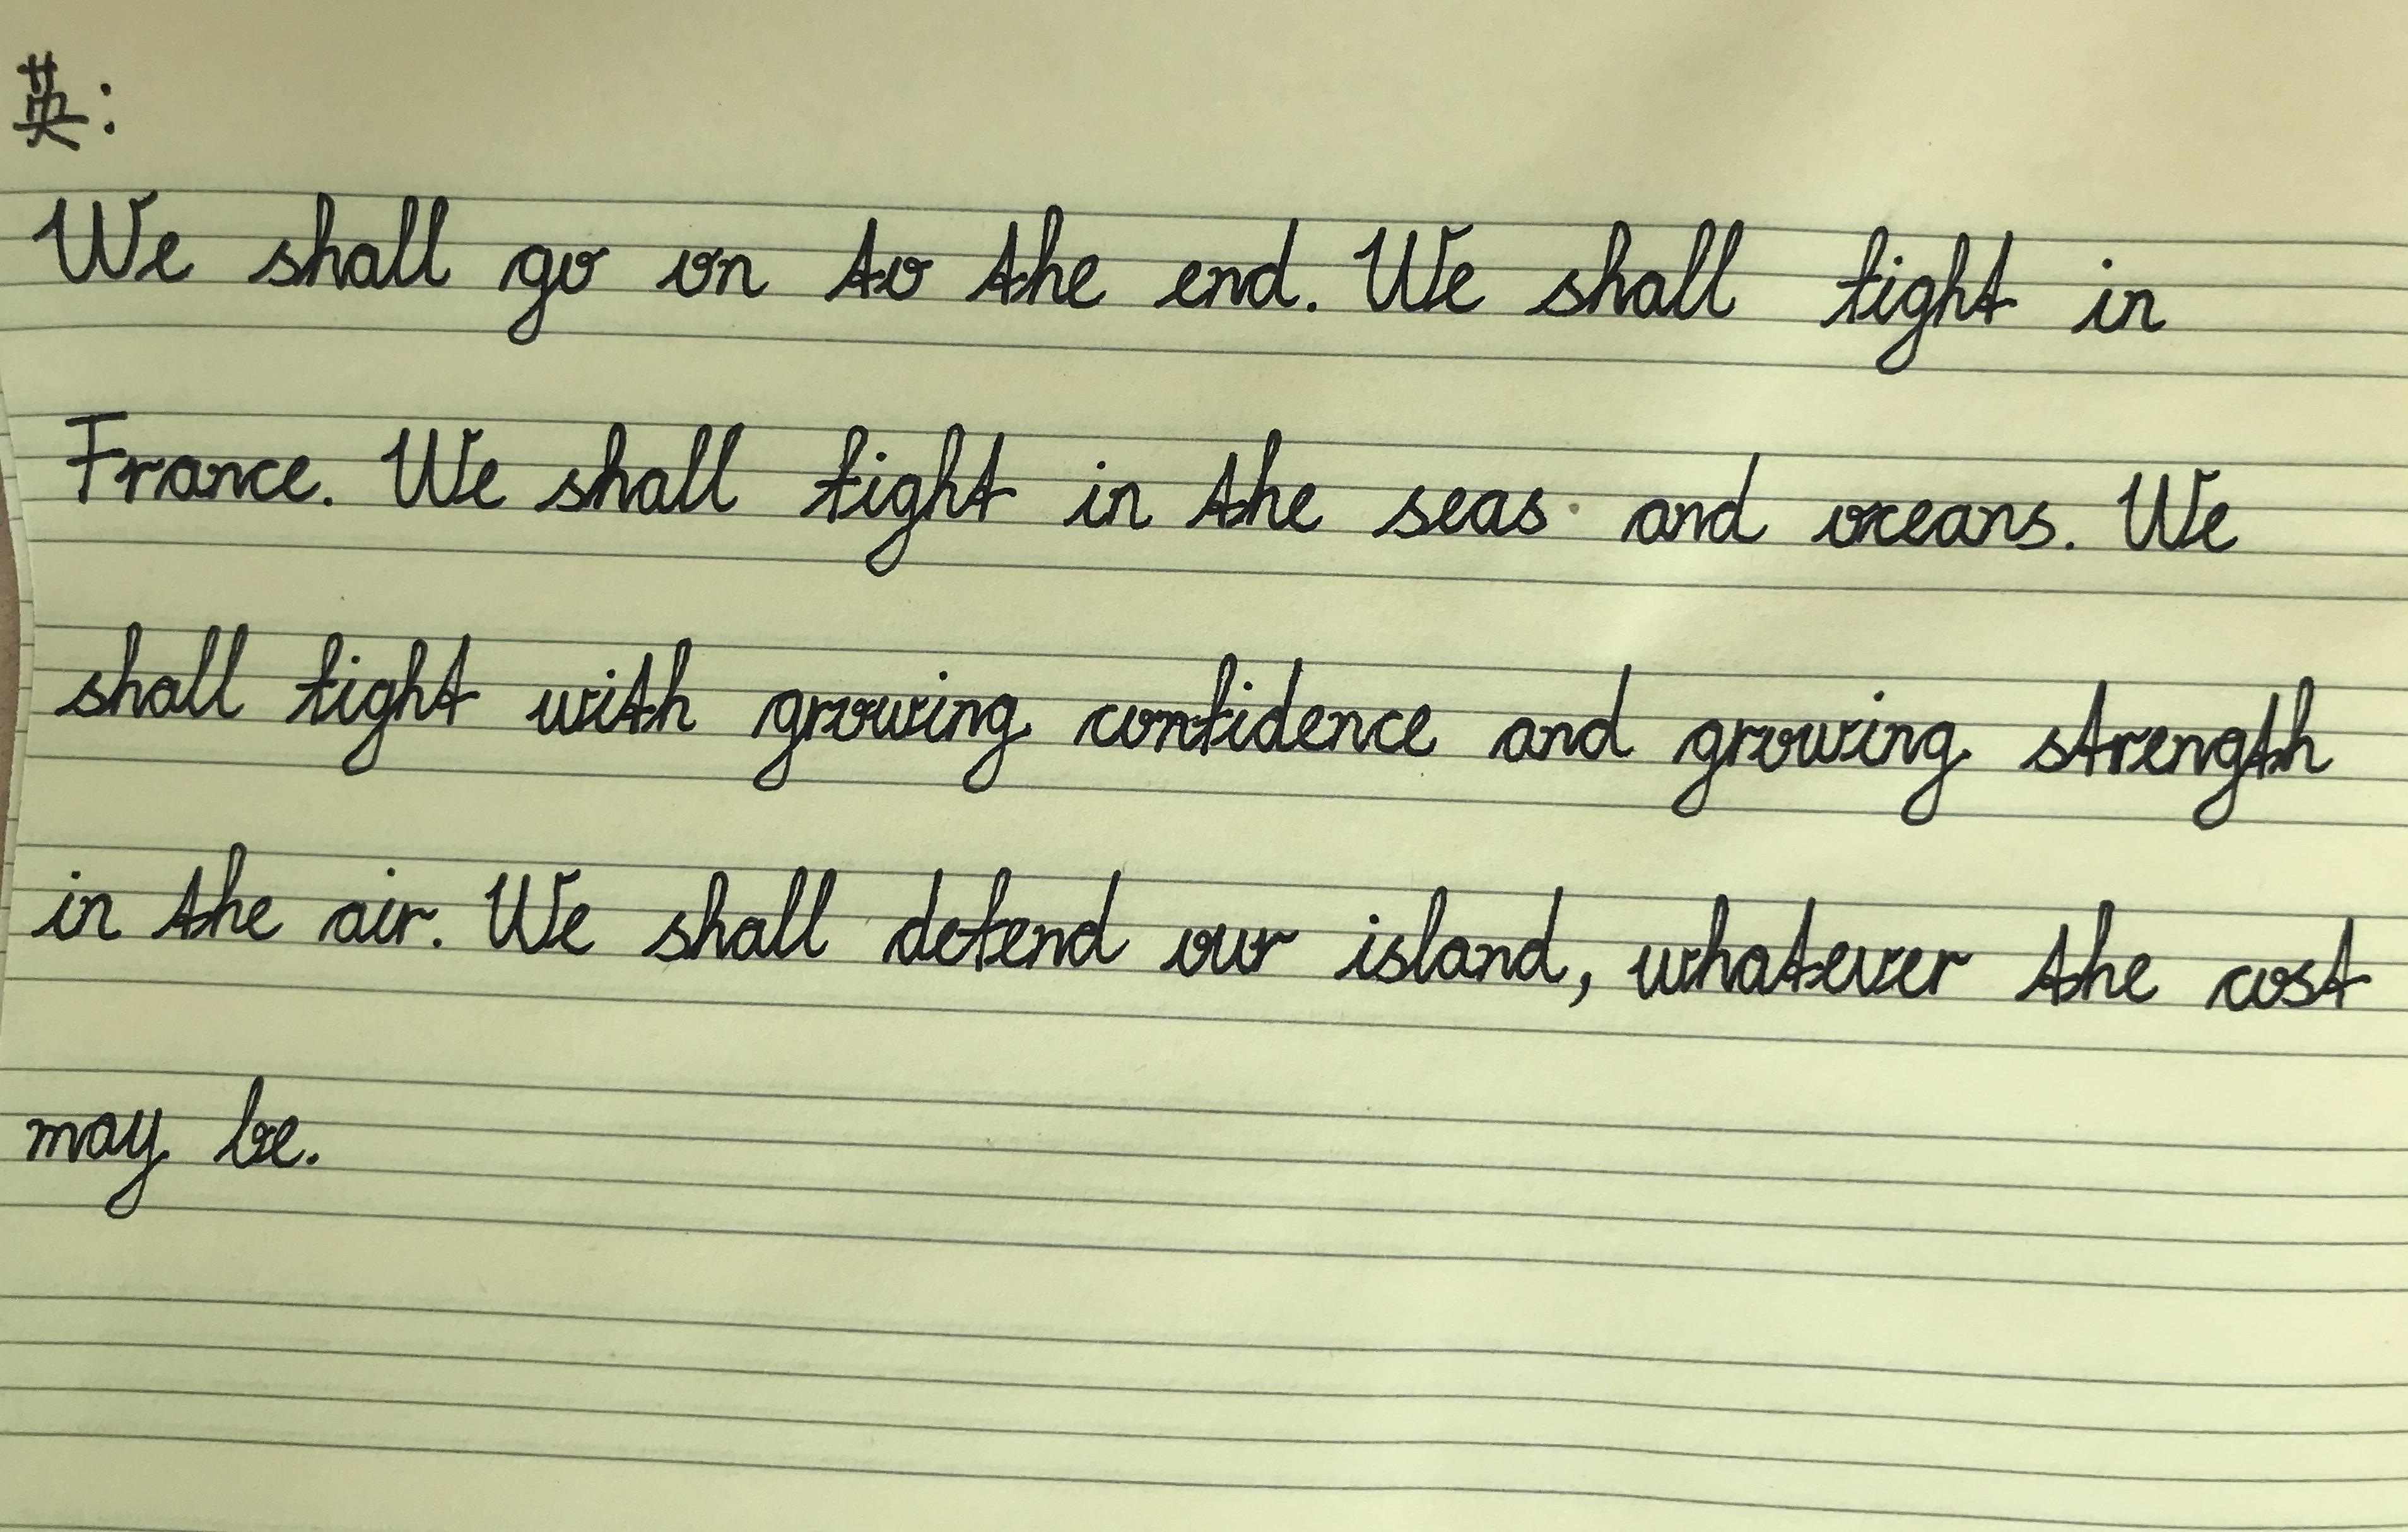 英:
We shall go on to the end. We shall fight in
France. We shall fight in the seas and oceans. We
shall fight with growing confidence and growing strength
in the air. We shall defend our island, whatever the cost
may be.